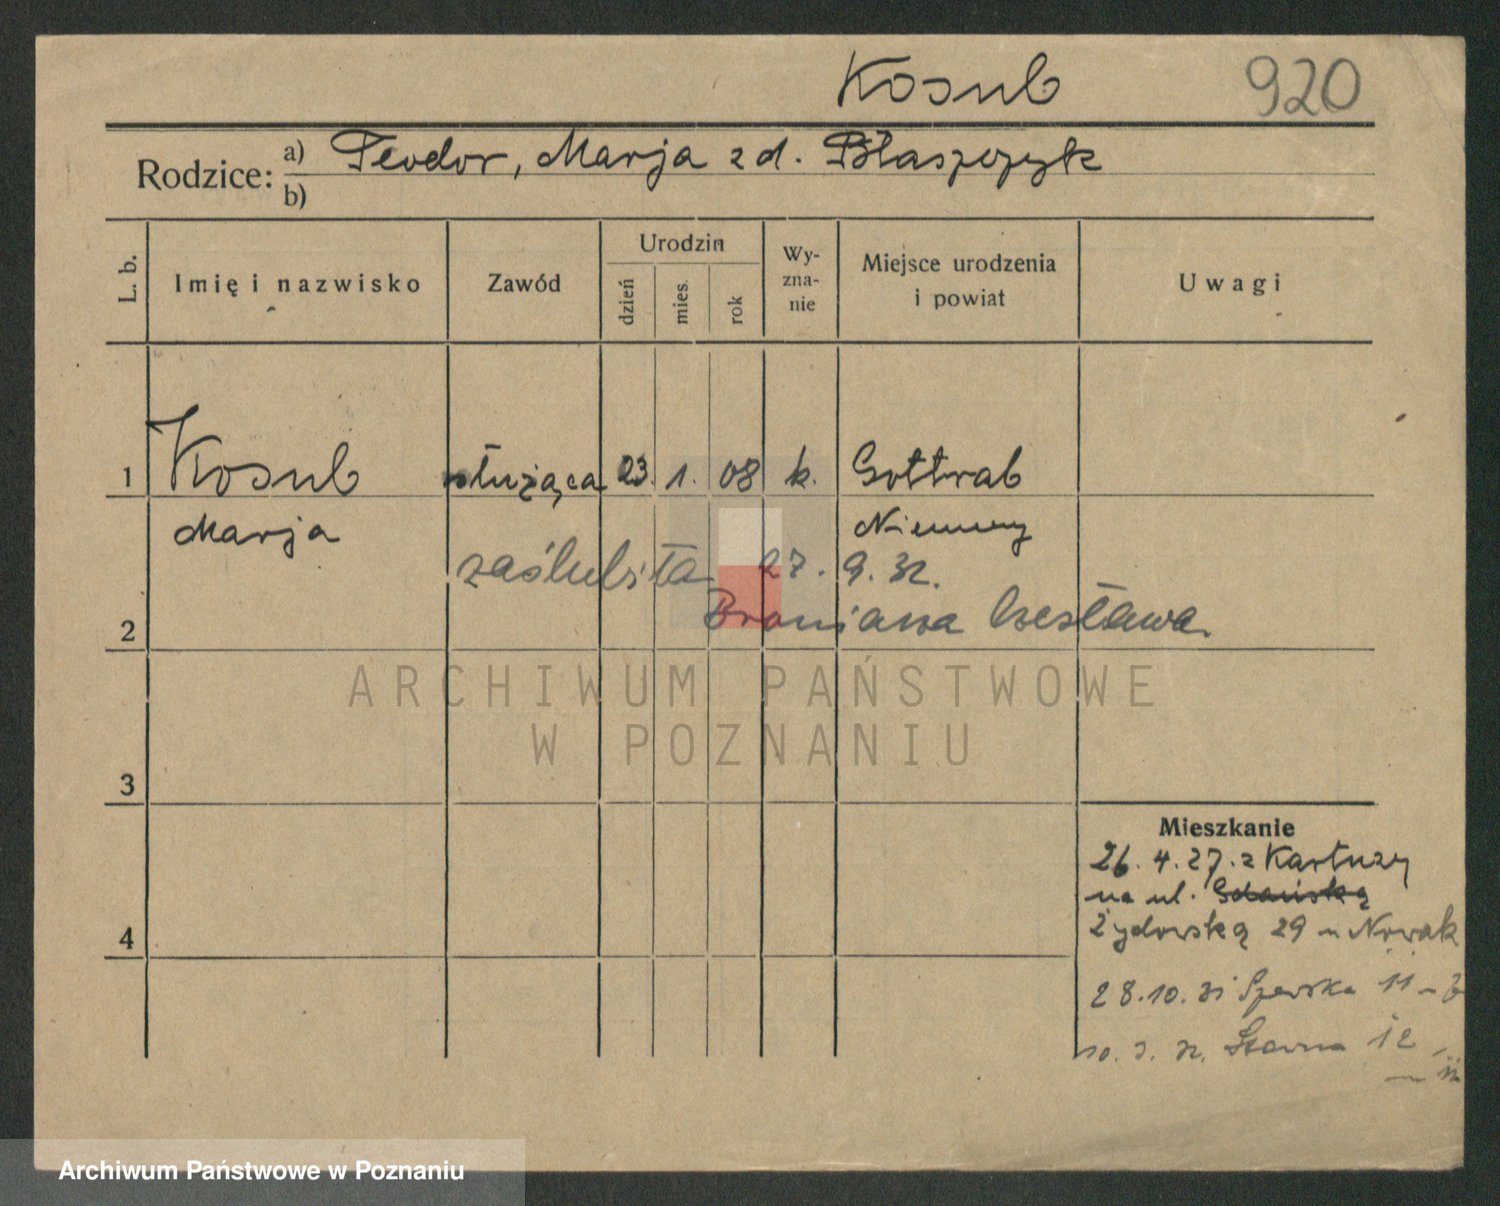 Kosub 920
Rodzice: a) Teodor, Marja z d. Błaszczyk
b)
L. b. Imię i nazwisko Zawód Urodzin dzień mies. rok Wy-zna-nie Miejsce urodzenia i powiat Uwagi
1 Kosub służąca 23. 1. 08 k. Gottrab
Marja Niemcy
zaślubiła 27. 9. 32.
2 Czesława
ARCHIWUM PAŃSTWOWE
W POZNANIU
3
Mieszkanie
26. 4. 27. z Kartuzy
na ul. Gdańską
4 Żydowską 29 m Nowak
28.10.31 Szewska 11
10. 3. 32. 12
Archiwum Państwowe w Poznaniu